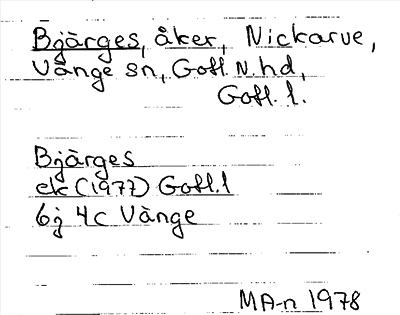 Bjärges, åker, Nickarve,
Vänge sn, Gotl. N. hd,
Gotl. l.
Bjärges
ek (1977) Gotl. l
6j 4c Vänge
MA-n 1978